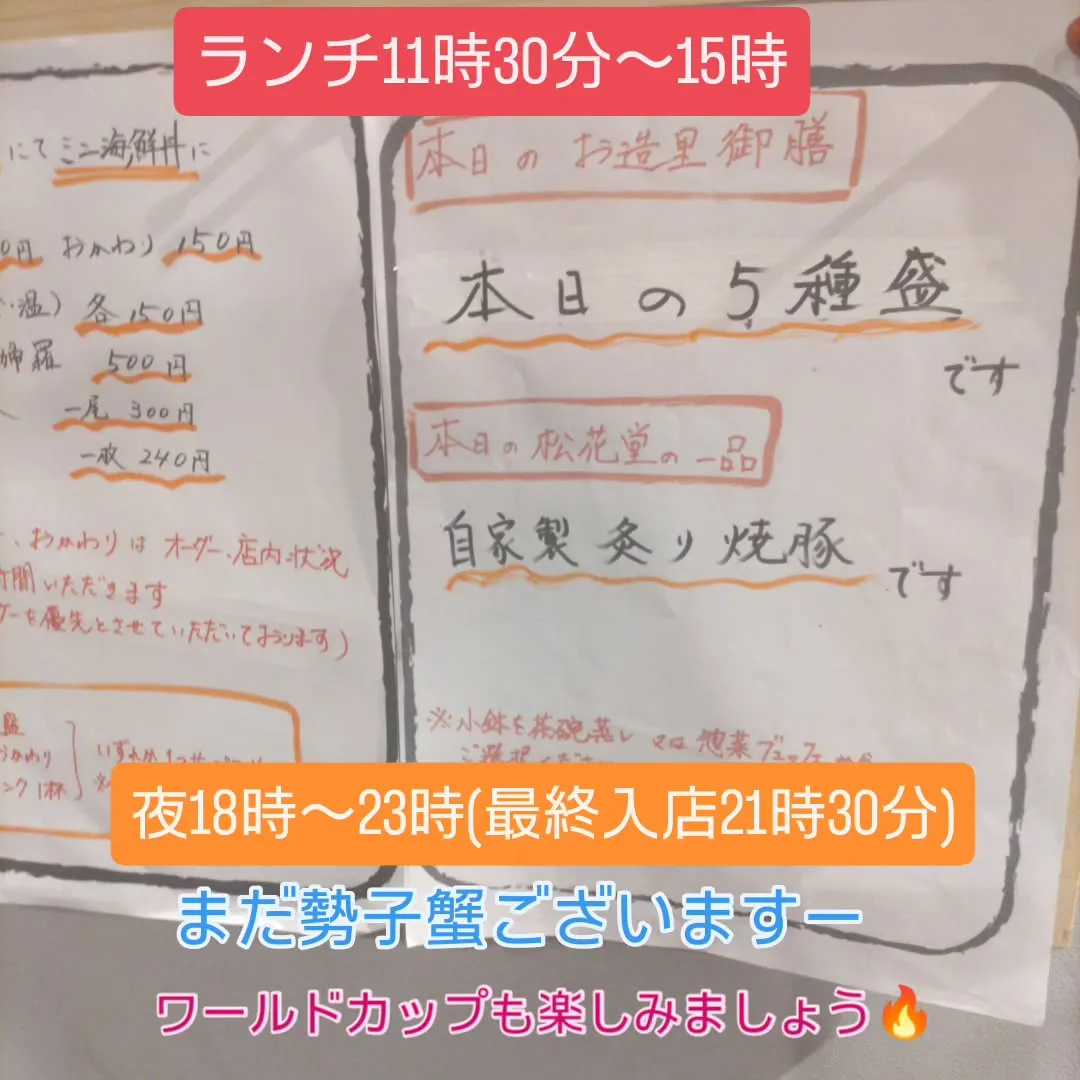 ランチ11時30分〜15時
にてミニ海鮮丼に
0円 おかわり 150円
・温) 各150円
羅 500円
一尾 300円
一枚 240円
、おかわりは オーダー、店内状況
間いただきます
ダーを優先とさせていただいております)
盛
おかわり
ンク1杯
本日の お造里御膳
本日の5種盛
です
本日の松花堂の一品
自家製 炙り焼豚
です
※小鉢を茶碗蒸し 又は 惣菜ブュッフェ
ご選択ください
夜18時〜23時(最終入店21時30分)
まだ勢子蟹ございますー
ワールドカップも楽しみましょう🔥